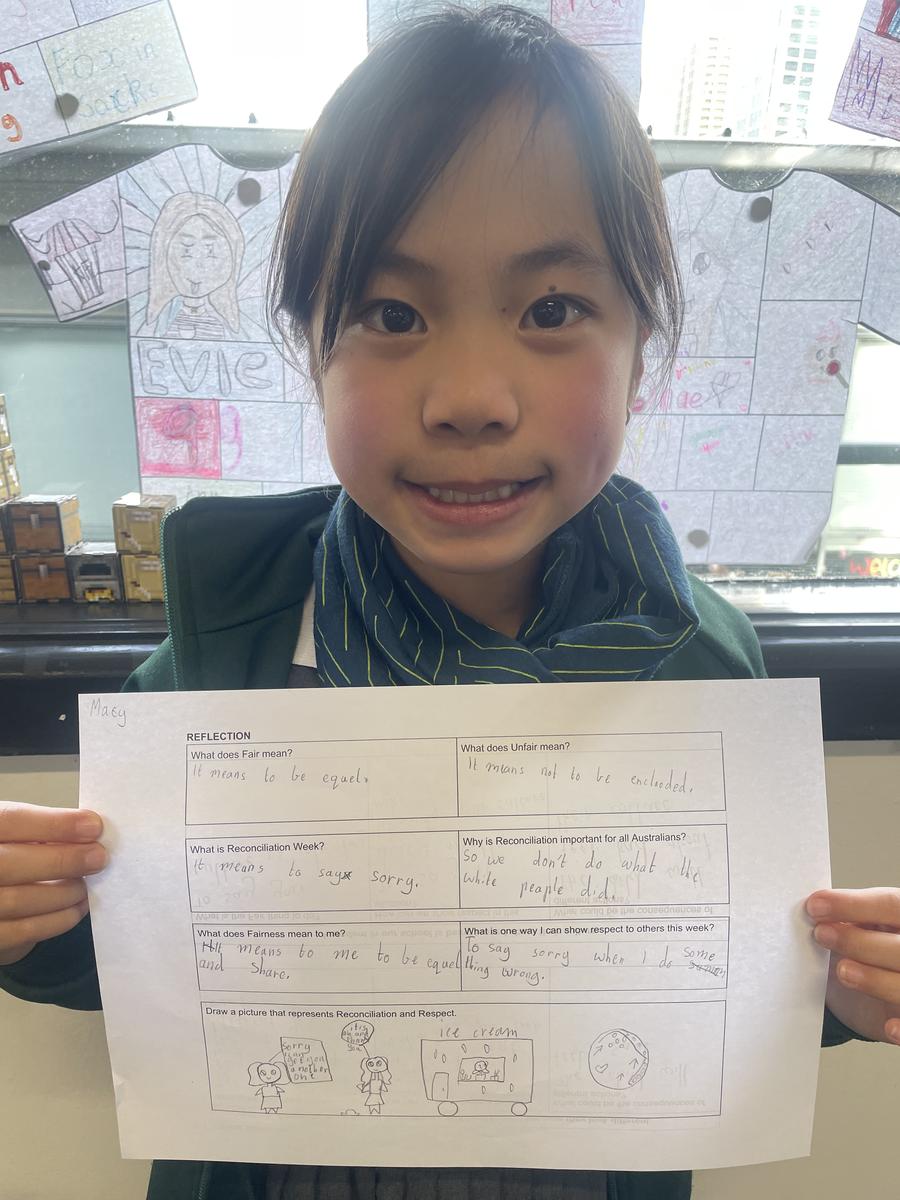 Foxin
socks
EVIE
Macy
REFLECTION
What does Fair mean?
It means to be equel.
What does Unfair mean?
It means not to be enclooded.
What is Reconciliation Week?
It means to say sorry.
Why is Reconciliation important for all Australians?
So we don't do what the
white peaple did.
What does Fairness mean to me?
It means to me to be equel
and share.
What is one way I can show respect to others this week?
To say sorry when I do some
thing wrong.
Draw a picture that represents Reconciliation and Respect.
Sorry
I can
get you
another
one
it is
ok and
thank
you
ice cream